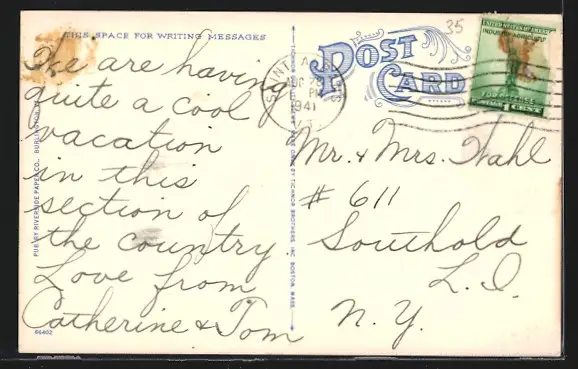 THIS SPACE FOR WRITING MESSAGES
We are having
quite a cool
vacation
in this
section of
the country
Love from
Catherine & Tom
66402
PUB. BY RIVERSIDE PAPER CO., BURLINGTON,
TICHNOR BROTHERS, INC. BOSTON, MASS.
POST CARD
35
SAINT
1941
PM
UNITED STATES OF AMERICA
INDUSTRY AGRICULTURE
FOR DEFENSE
Mr. & Mrs. Wahl
# 611
Southold
L. I.
N. Y.